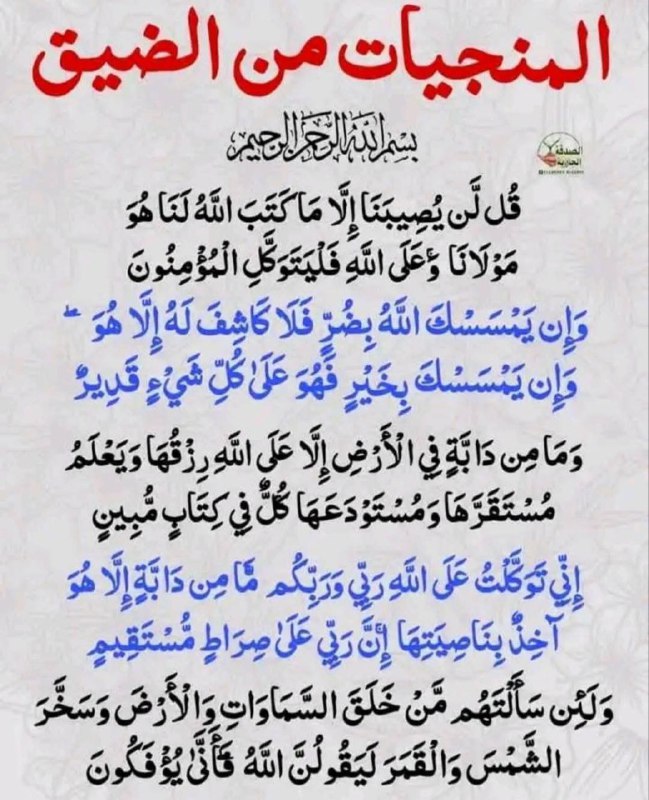 المنجيات من الضيق
بسم الله الرحمن الرحيم
الصدقة
الجارية
قُل لَّن يُصِيبَنَا إِلَّا مَا كَتَبَ اللَّهُ لَنَا هُوَ
مَوْلَانَا وَعَلَى اللَّهِ فَلْيَتَوَكَّلِ الْمُؤْمِنُونَ
وَإِن يَمْسَسْكَ اللَّهُ بِضُرٍّ فَلَا كَاشِفَ لَهُ إِلَّا هُوَ
وَإِن يَمْسَسْكَ بِخَيْرٍ فَهُوَ عَلَىٰ كُلِّ شَيْءٍ قَدِيرٌ
وَمَا مِن دَابَّةٍ فِي الْأَرْضِ إِلَّا عَلَى اللَّهِ رِزْقُهَا وَيَعْلَمُ
مُسْتَقَرَّهَا وَمُسْتَوْدَعَهَا كُلٌّ فِي كِتَابٍ مُّبِينٍ
إِنِّي تَوَكَّلْتُ عَلَى اللَّهِ رَبِّي وَرَبِّكُم مَّا مِن دَابَّةٍ إِلَّا هُوَ
آخِذٌ بِنَاصِيَتِهَا إِنَّ رَبِّي عَلَىٰ صِرَاطٍ مُّسْتَقِيمٍ
وَلَئِن سَأَلْتَهُم مَّنْ خَلَقَ السَّمَاوَاتِ وَالْأَرْضَ وَسَخَّرَ
الشَّمْسَ وَالْقَمَرَ لَيَقُولُنَّ اللَّهُ فَأَنَّىٰ يُؤْفَكُونَ